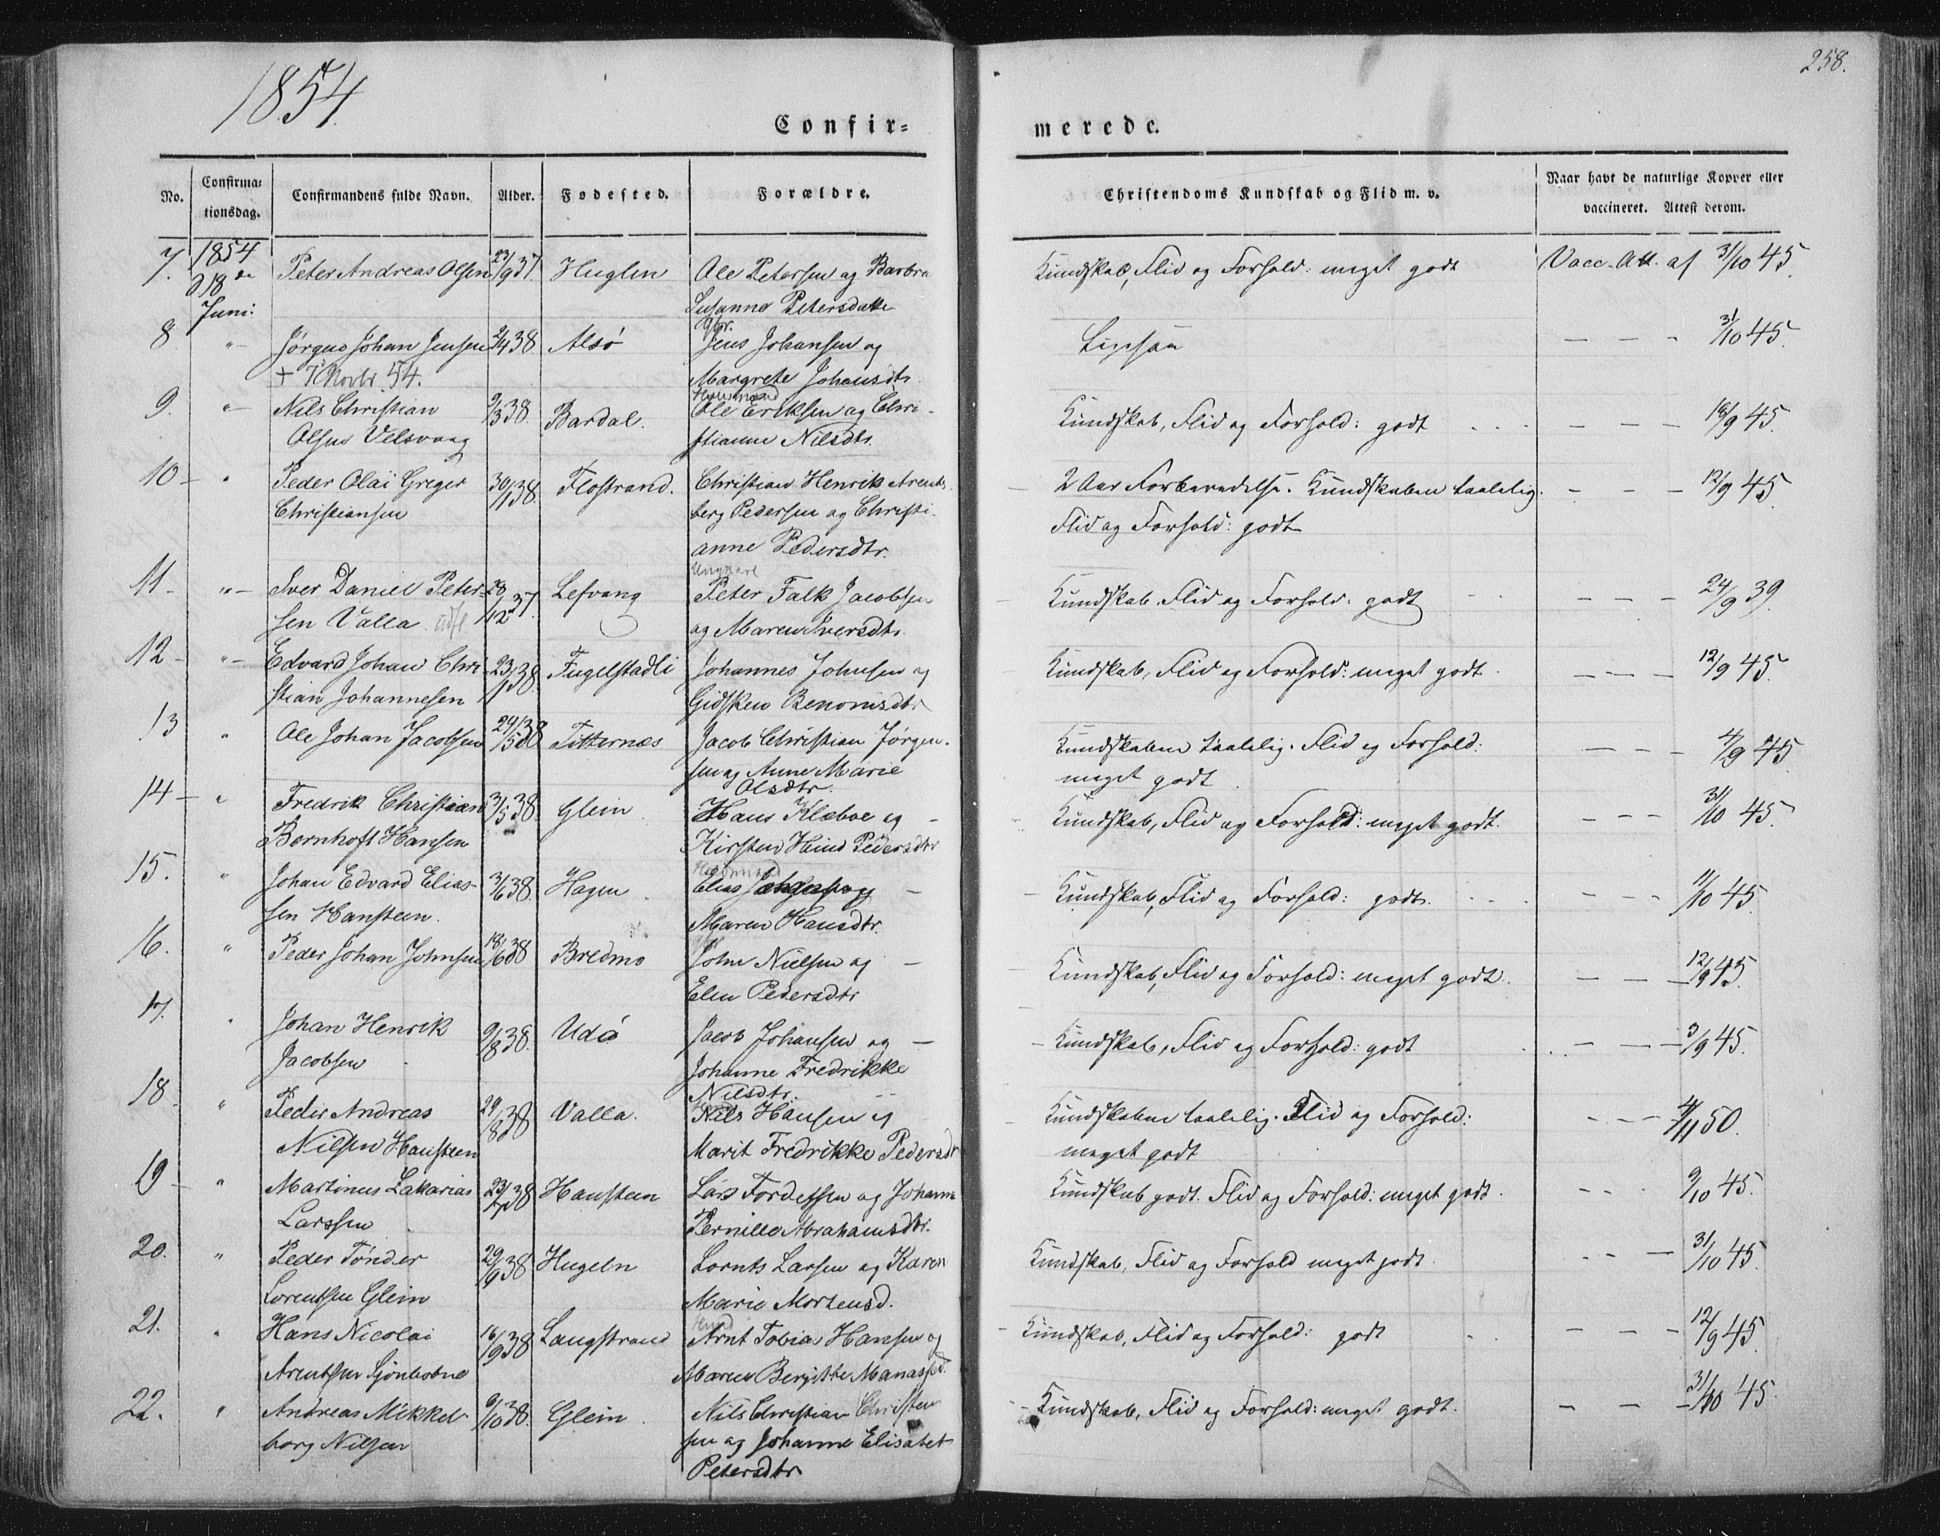 1854
258.
Confir=
merede.
No.
Confirma=
tionsdag.
Confirmandens fulde Navn.
Alder.
Fødested.
Forældre.
Christendoms Kundskab og Flid m. v.
Naar havt de naturlige Kopper eller
vaccineret. Attest derom.
7. 1854 Peter Andreas Olsen 23/9 37. Huglen Ole Petersen og Barbra Kundskab, Flid og Forhold: meget godt Vacc. Att. af 31/10 45.
18de
Juni: Susanna Petersdatte
8 " Jørgen Johan Jensen 2/4 38 Alsø Jens Johansen og Ligesaa — — — 31/10 45.
+ Novbr 54. Margrete Johansdtr.
9. " Nils Christian 9/3 38. Bardal. Ole Eriksen og Chri- Kundskab, Flid og Forhold: godt — — — 18/9 45.
Olsen Velsvaag stianne Nilsdtr.
10 " Peder Olai Greger 30/1 38. Flostrand. Christian Henrik Arent- 2 Aar Forberedelse. Kundskaben taalelig. — — — 12/9 45.
Christiansen berg Pedersen og Christi- Flid og Forhold: godt
anne Pedersdtr.
11. " Iver Daniel Peter- 28/12 37. Lefvang Peter Falk Jacobsen Kundskab, Flid og Forhold: godt — — — 24/9 39.
sen Valla udfl. og Maren Iversdtr.
12 " Edvard Johan Chri- 23/1 38. Fugelstadli Johannes Johnsen og Kundskab, Flid og Forhold: meget godt. — — — 12/9 45.
stian Johannesen Gidsken Benonisdtr
13 " Ole Johan Jacobsen 24/5 38 Titternæs Jacob Christian Jørgen- Kundskaben taalelig. Flid og Forhold: — — — 4/9 45
sen og Anne Marie meget godt.
Olsdtr.
14 " Fredrik Christian 3/5 38. Glein Hans Klæboe og Kundskab, Flid og Forhold: meget godt. — — — 31/10 45.
Bornhoft Hansen Kirsten Hind Pedersdtr
15. " Johan Edvard Elias- 3/6 38. Hagen Elias og Kundskab, Flid og Forhold: godt. — — 11/10 45.
sen Hansteen. Maren Hansdtr.
16. " Peder Johan Johnsen 18/6 38 Bredmo John Nielsen og Kundskab, Flid og Forhold: meget godt. — — — 12/9 45.
Elen Pedersdtr
17. " Johan Henrik 9/8 38. Udø Jacob Johansen og Kundskab, Flid og Forhold: godt — — — 3/9 45.
Jacobsen Johanne Fredrikke
Nilsdtr.
18 " Peder Andreas 29/8 38 Valla. Nils Hansen og Kundskaben taalelig. Flid og Forhold: — — — 4/11 50.
Nilsen Hansteen Marit Fredrikke Pedersdtr meget godt
19 " Martinus Zakarias 38 Hansteen Lars Tordersen og Johanne Kundskab godt. Flid og Forhold: meget godt. — — 9/10 45.
Larssen Pernille Abrahamsdtr.
20. " Peder Tønder 29/9 38 Hugeln Lornts Larsen og Karen Kundskab, Flid og Forhold meget godt. — — — 31/10 45.
Lorentsen Glein Marie Mortensd.
21. " Hans Nicolai 16/9 38 Langstrand Arnt Tobias Hansen og Kundskab, Flid og Forhold: godt — — — 12/9 45.
Arentsen Sjonbotne Maren Bergitte Manassed.
22. " Andreas Mikkel- 9/10 38. Glein. Nils Christian Christen Kundskab, Flid og Forhold: meget godt. — — — 31/10 45.
borg Nilsen sen og Johanne Elisabet
Petersdtr